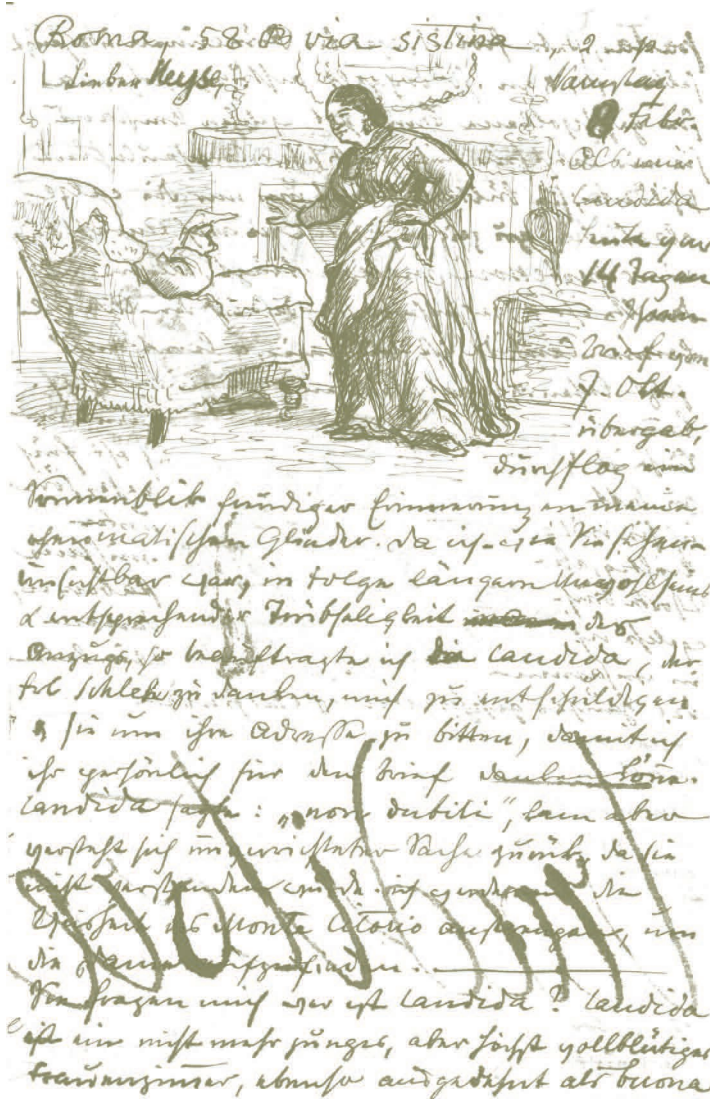 Roma, 58 via sistina, 2
Lieber Heyse,
Samstag
8 Febr.
Als mir
Candida
heute vor
14 Tagen
Ihren
Brief vom
7 Okt.
übergab,
durchflog ein
Sonnenblik freudiger Erinnerung meine
rheumatischen Glieder. Da ich
unsichtbar war, in Folge längern Unwohlseins
& entsprechender Trübseligkeit des
Anzugs, so beauftragte ich Candida, der
zu danken, mich zu entschuldigen
& sie um ihre Adresse zu bitten, damit ich
ihr persönlich für den Brief danken köne.
Candida sagte: „non dubiti", kam aber
versteht sich unverrichteter Sache zurük, da sie
nicht verstanden wurde. die
Weisheit des Monte Citorio um
die aufzufinden.
Sie fragen mich wer ist Candida? Candida
ist ein nicht mehr junges, aber höchst vollblütiges
Frauenzimmer, ebenso ausgedehnt als buona